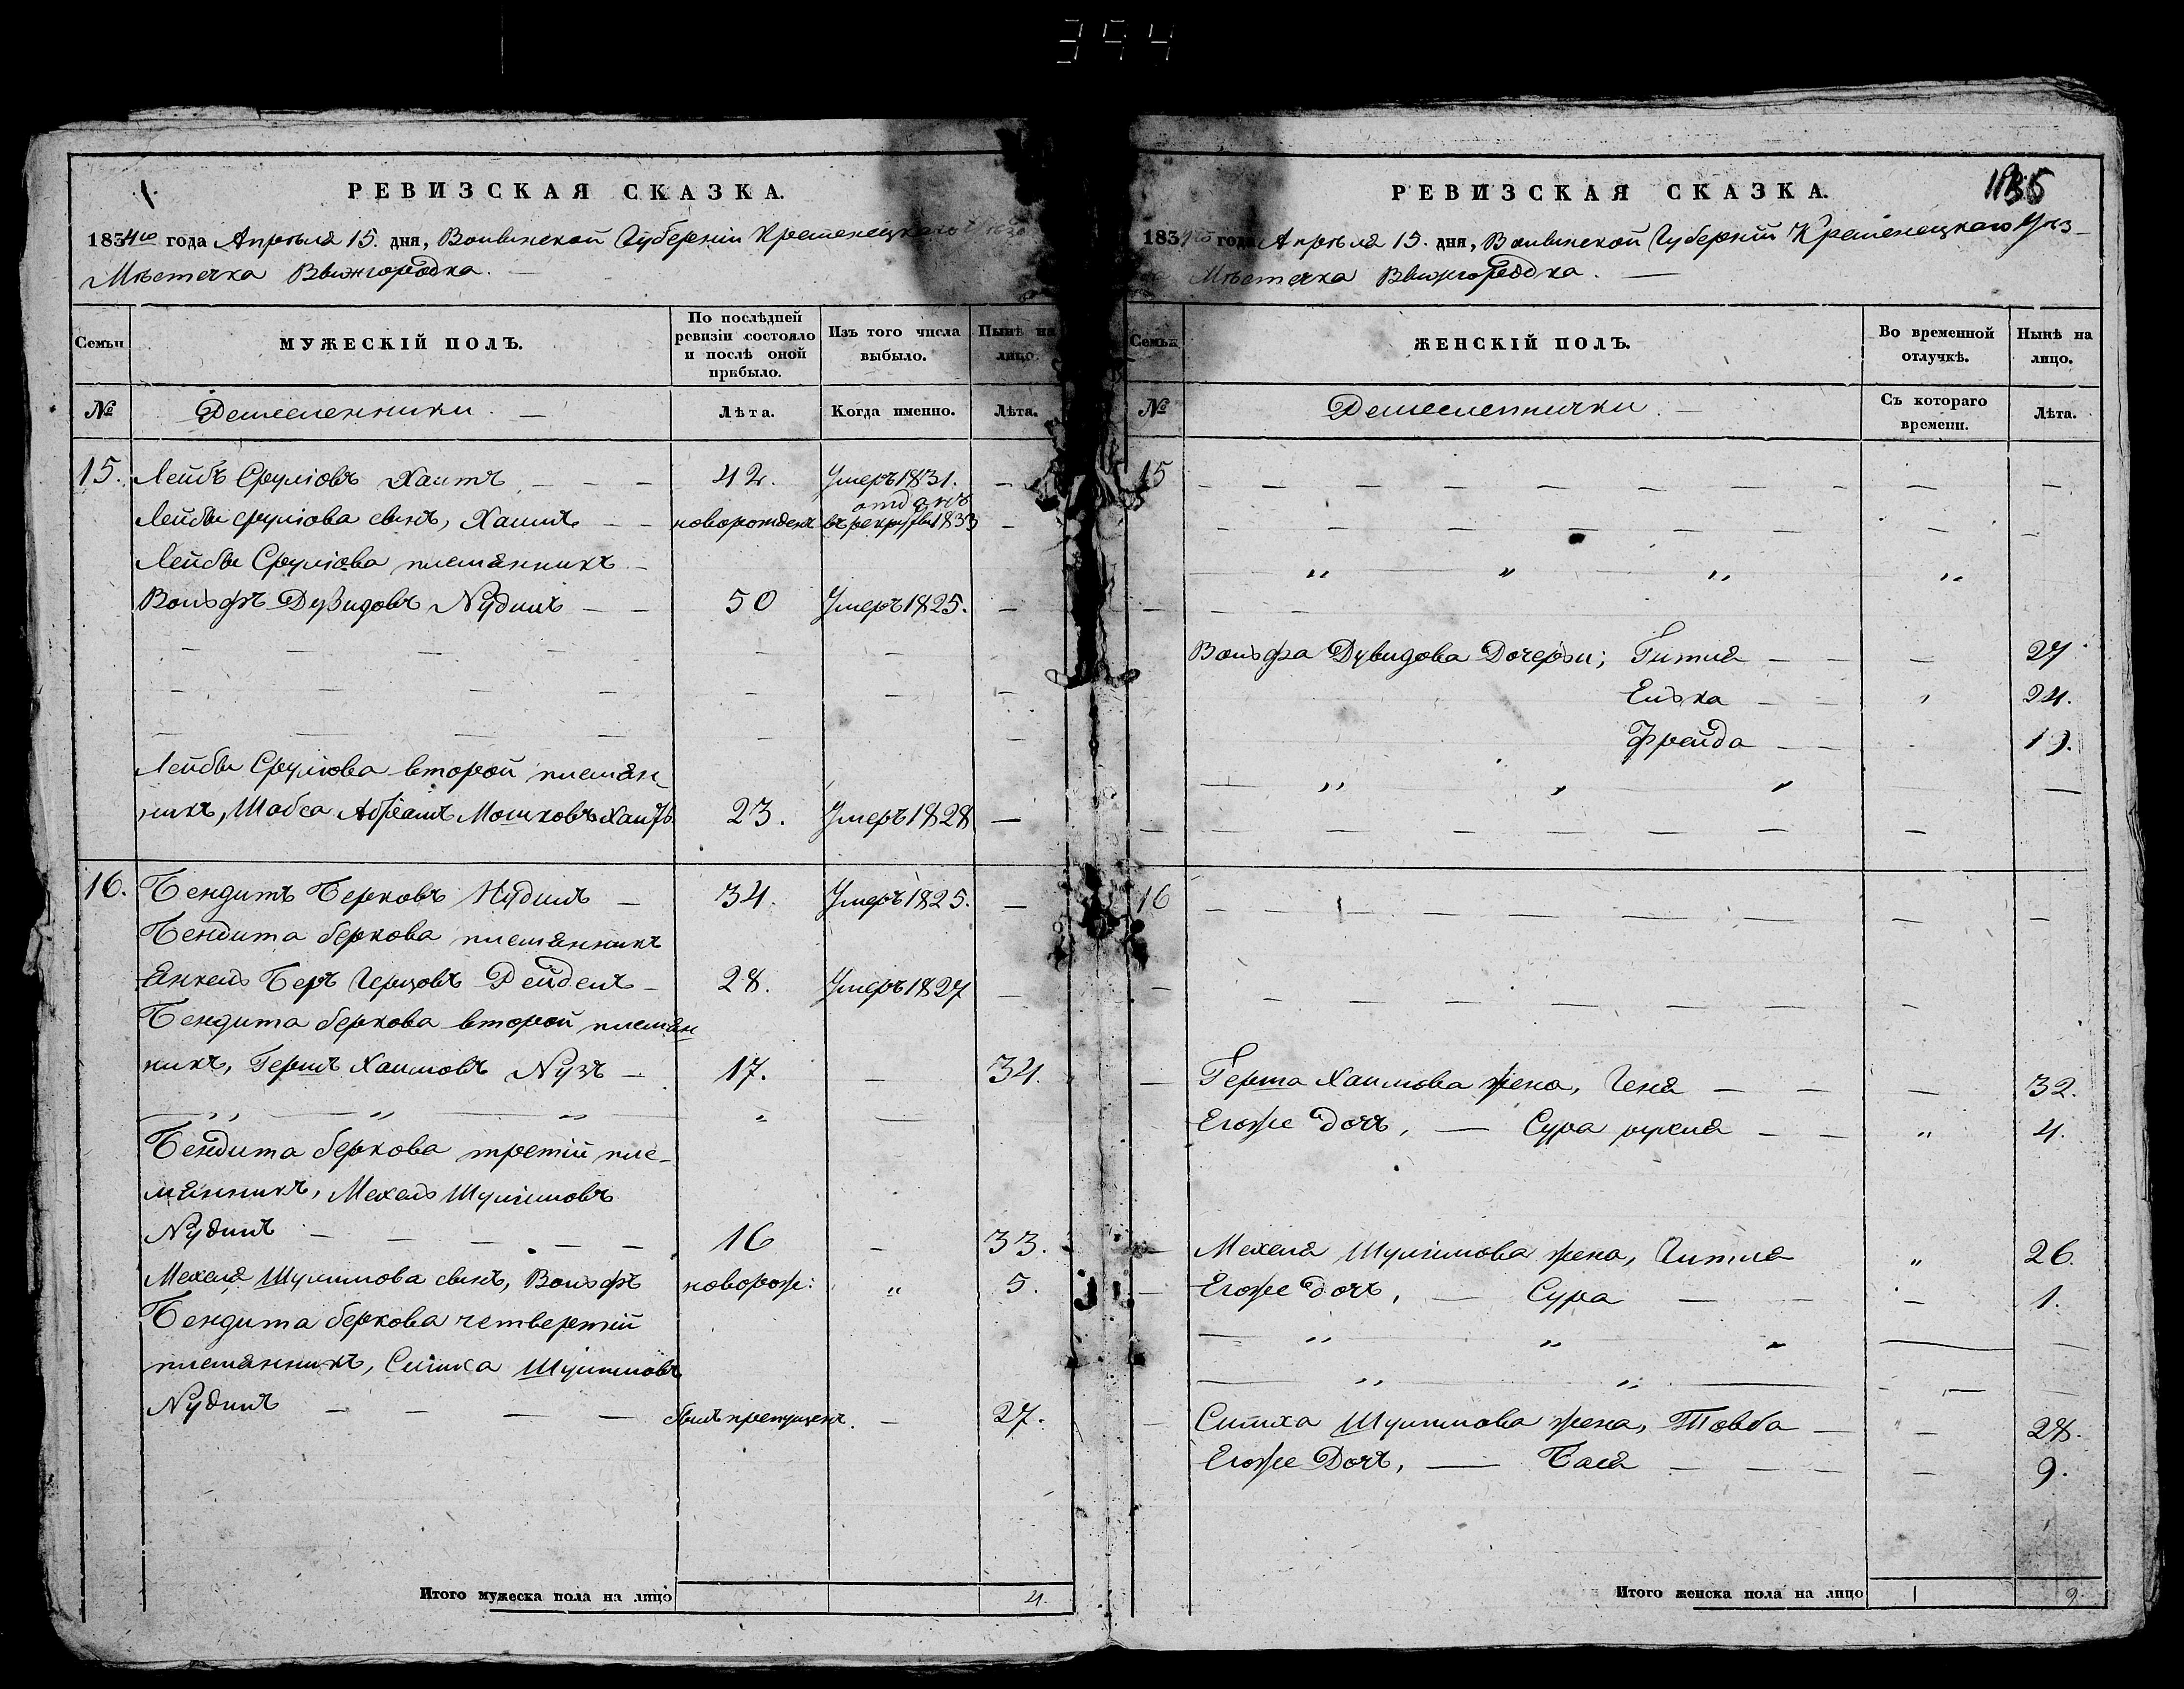 394
РЕВИЗСКАЯ СКАЗКА.
1834го года Апрѣля 15. дня, Волынской Губерніи Кременецкаго
Мѣстечка Вышгородка. —
Семьи
МУЖЕСКІЙ ПОЛЪ.
По послѣдней ревизіи состояло и послѣ оной прибыло.
Изъ того числа выбыло.
Нынѣ на лицо.
№
Ремесленники. —
Лѣта.
Когда именно.
Лѣта.
15. Лейбъ Сруліовъ — — — 42. Умеръ 1831. —
Лейбы Сруліова сынъ, Хаимъ — — новорожденъ отданъ въ рекруты 1833 —
Лейбы Сруліова племянникъ —
Вольфъ Дувидовъ Нудинъ — — 50 Умеръ 1825. —
Лейбы Сруліова второй племян
никъ, Шабса Абрамъ Мошковъ 23. Умеръ 1828 —
16. Бендитъ Берковъ Нудинъ — 34. Умеръ 1825. —
Бендита Беркова племянникъ
Янкель Беръ Герцовъ Рейделъ — 28. Умеръ 1827 —
Бендита Беркова второй племян
никъ, Гершъ Хаимовъ Нузъ — 17. — 34.
Бендита Беркова третій пле-
мянникъ, Мехель Шулимовъ
Нудинъ — — — — — 16 — 33.
Мехеля Шулимова сынъ, Вольфъ новорож: " 5.
Бендита Беркова четвертій
племянникъ, Симха Шулимовъ
Нудинъ — — — — былъ пропущенъ. — 27.
Итого мужеска пола на лицо 4.
РЕВИЗСКАЯ СКАЗКА.
1834го года Апрѣля 15. дня, Волынской Губерніи Кременецкаго Уѣз-
да Мѣстечка Вышгородка. —
Семьи
ЖЕНСКІЙ ПОЛЪ.
Во временной отлучкѣ.
Нынѣ на лицо.
№
Ремесленнички. —
Съ котораго времени.
Лѣта.
15
Вольфа Дувидова Дочерьи; Гитля — — — 27
Элька — — 24.
Фрейда — — 19.
16
Герша Хаимова жена, Геня — — — 32.
Егоже дочь, — Сура рухля — — " 4.
Мехеля Шулимова жена, Гитля " 26.
Егоже дочь, — Сура — — — 1.
Симха Шулимова жена, Товба — — 28.
Егоже Дочь, — Бася — — — — 9.
Итого женска пола на лицо 9.